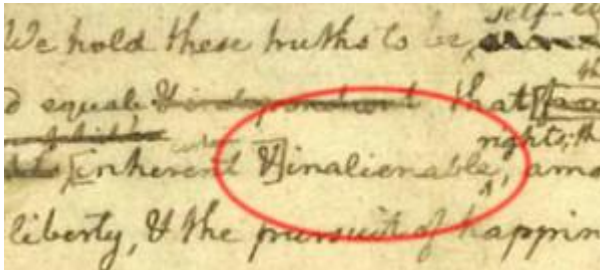 self-e
We hold these truths to be
d equal, & independant that
certain rights; th
[inherent &] inalienable, amo
liberty, & the pursuit of happin